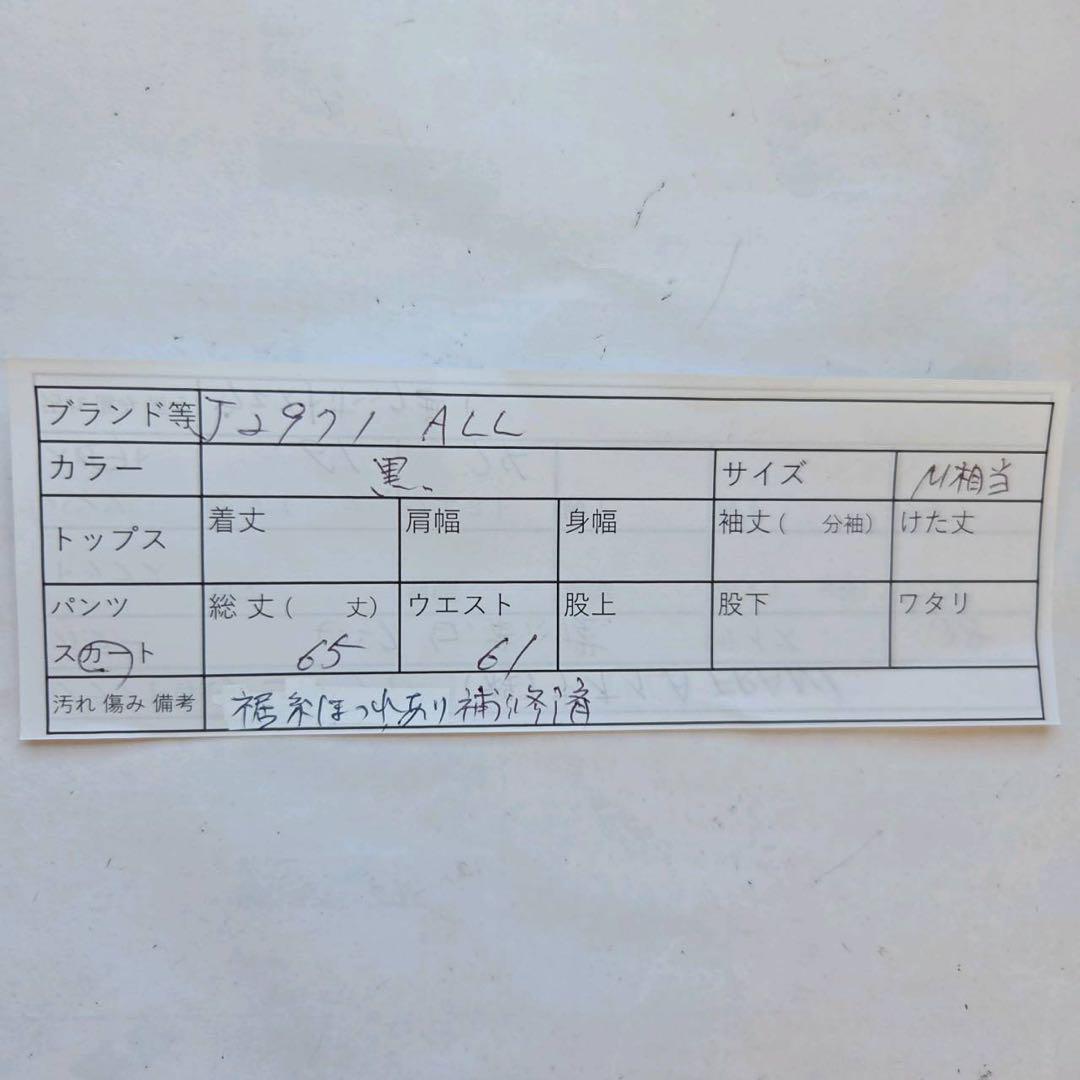 ブランド等 J2971 ALL
カラー 黒 サイズ M相当
トップス 着丈 肩幅 身幅 袖丈( 分袖) けた丈
パンツ 総丈( 丈) ウエスト 股上 股下 ワタリ
スカート 65 61
汚れ 傷み 備考 裾糸ほつれあり補修済